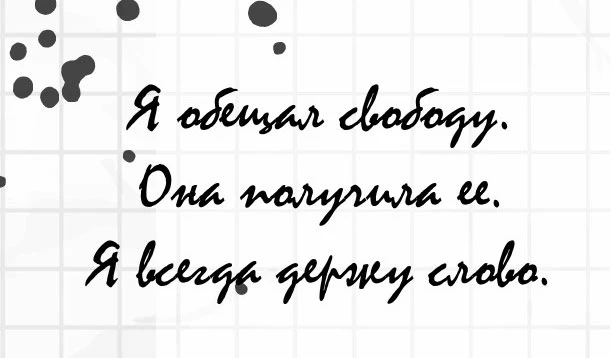 Я обещал свободу.
Она получила ее.
Я всегда держу слово.